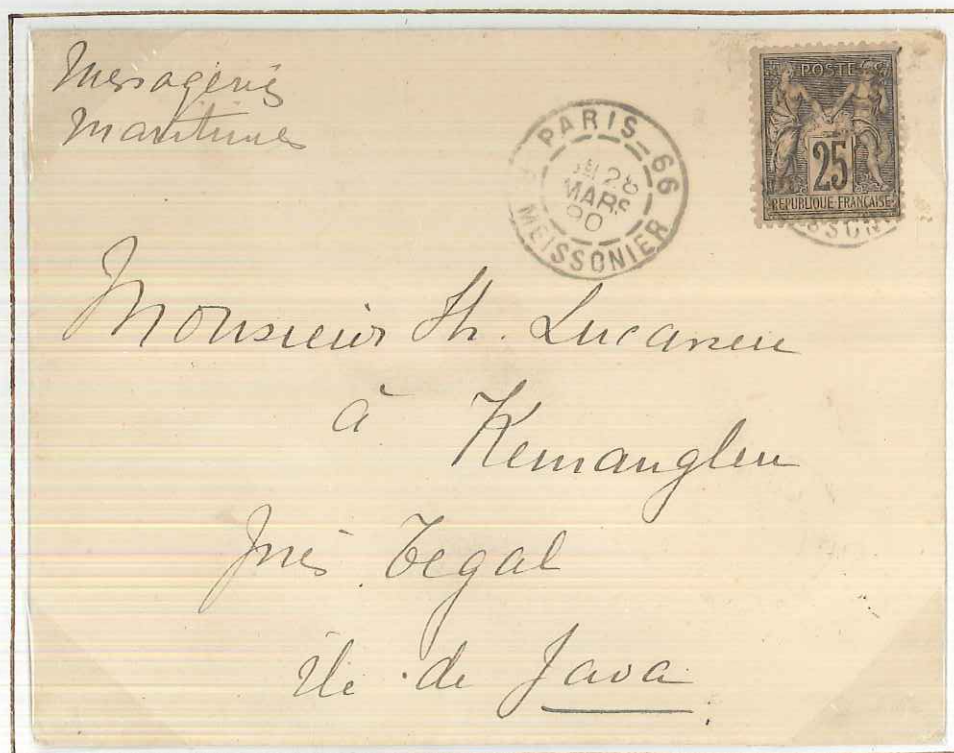 Messageries
Maritimes
PARIS_66
28
MARS
90
MEISSONIER
POSTE
25
REPUBLIQUE FRANCAISE
SSON
Monsieur Th. Lucassen
à Kemanglen
près Tegal
île de Java